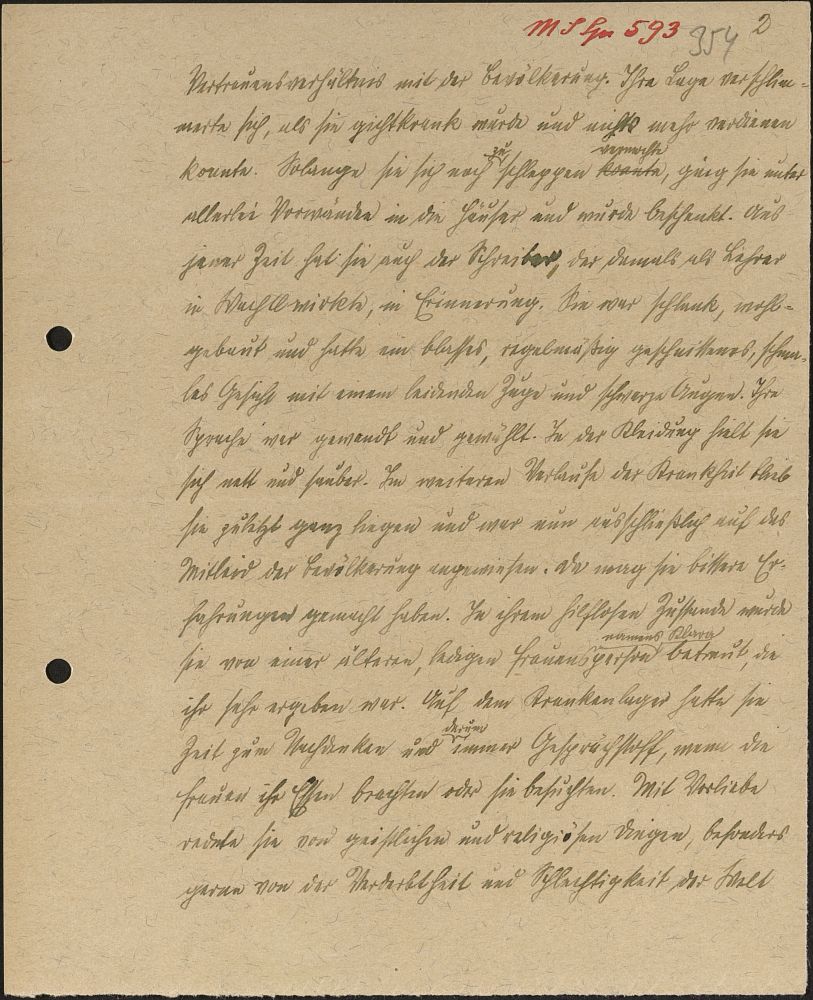 MS Gu 593 354 2
Vertrauensverhältnis mit der Bevölkerung. Ihre Lage verschlim-
merte sich, als sie gichtkrank wurde und nichts mehr verdienen
konnte. Solange sie sich noch zu schleppen konnte vermochte, ging sie unter
allerlei Vorwänden in die Häuser und wurde beschenkt. Aus
jener Zeit hat sie auch der Schreiber, der damals als Lehrer
in Wachtl wirkte, in Erinnerung. Sie war schlank, wohl-
gebaut und hatte ein blasses, regelmäßig geschnittenes, schma-
les Gesicht mit einem leidenden Zuge und schwarze Augen. Ihre
Sprache war gewandt und gewählt. In der Kleidung hielt sie
sich nett und sauber. Im weiteren Verlaufe der Krankheit blieb
sie zuletzt ganz liegen und war nun ausschließlich auf das
Mitleid der Bevölkerung angewiesen. Da mag sie bittere Er-
fahrungen gemacht haben. In ihrem hilflosen Zustande wurde
sie von einer älteren, ledigen Frauensperson namens Klara betreut, die
ihr sehr ergeben war. Auf dem Krankenlager hatte sie
Zeit zum Nachdenken und darum immer Gesprächstoff, wenn die
Frauen ihr Essen brachten oder sie besuchten. Mit Vorliebe
redete sie von geistlichen und religiösen Dingen, besonders
gerne von der Verderbtheit und Schlechtigkeit der Welt